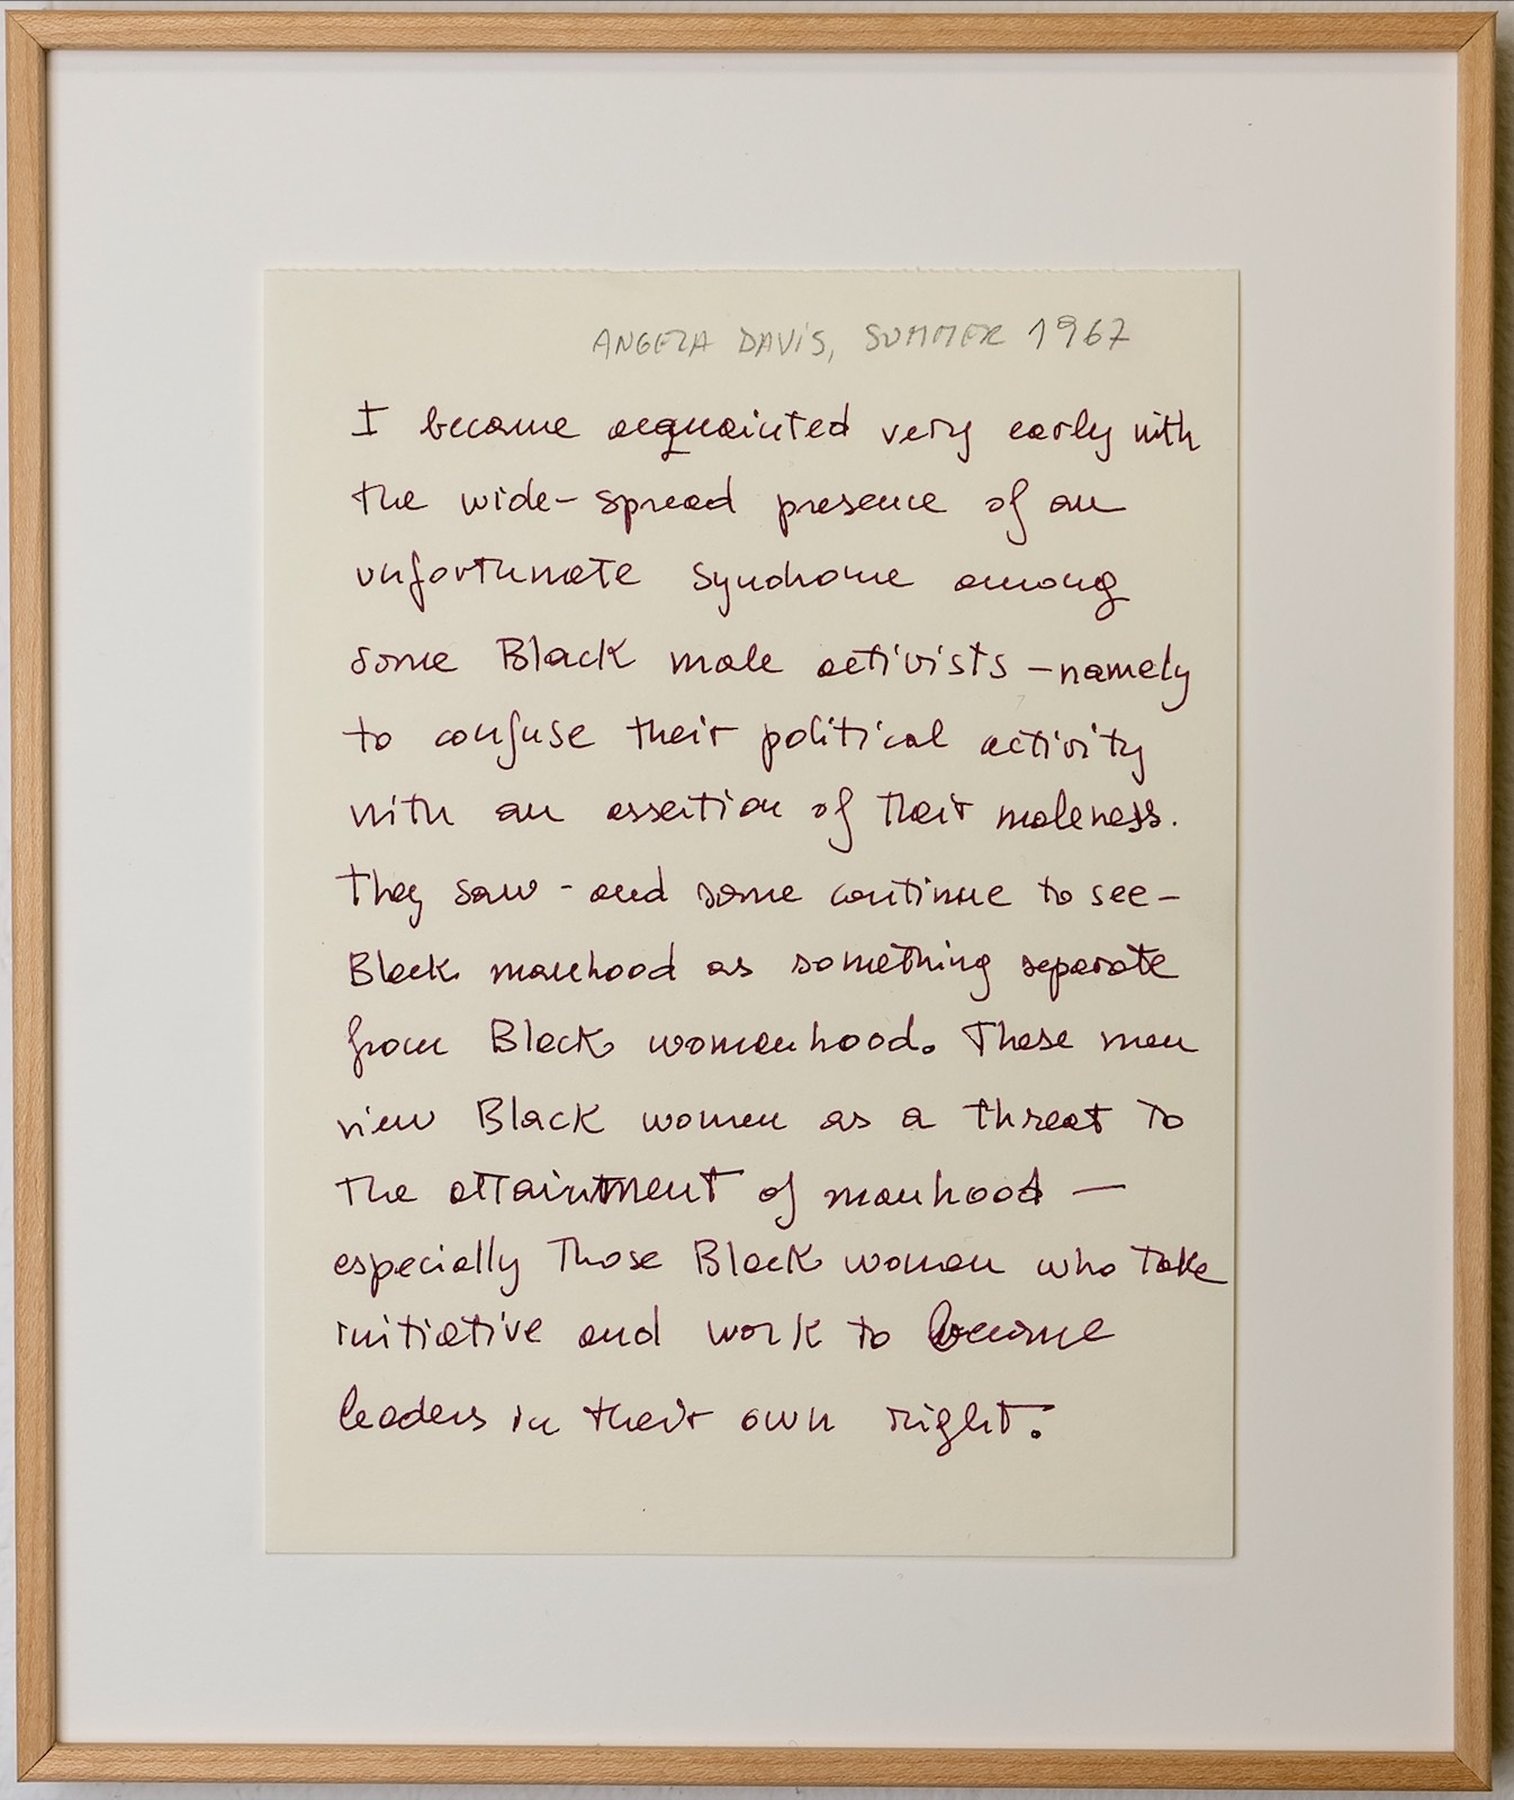 ANGELA DAVIS, SUMMER 1967
I became acquainted very early with
the wide-spread presence of an
unfortunate syndrome among
some Black male activists – namely
to confuse their political activity
with an assertion of their maleness.
They saw - and some continue to see –
Black manhood as something separate
from Black womanhood. These men
view Black women as a threat to
the attaintment of manhood —
especially those Black women who take
initiative and work to become
leaders in their own right.